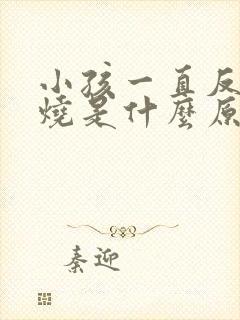 小孩一直反
燒是什麼原
秦迎